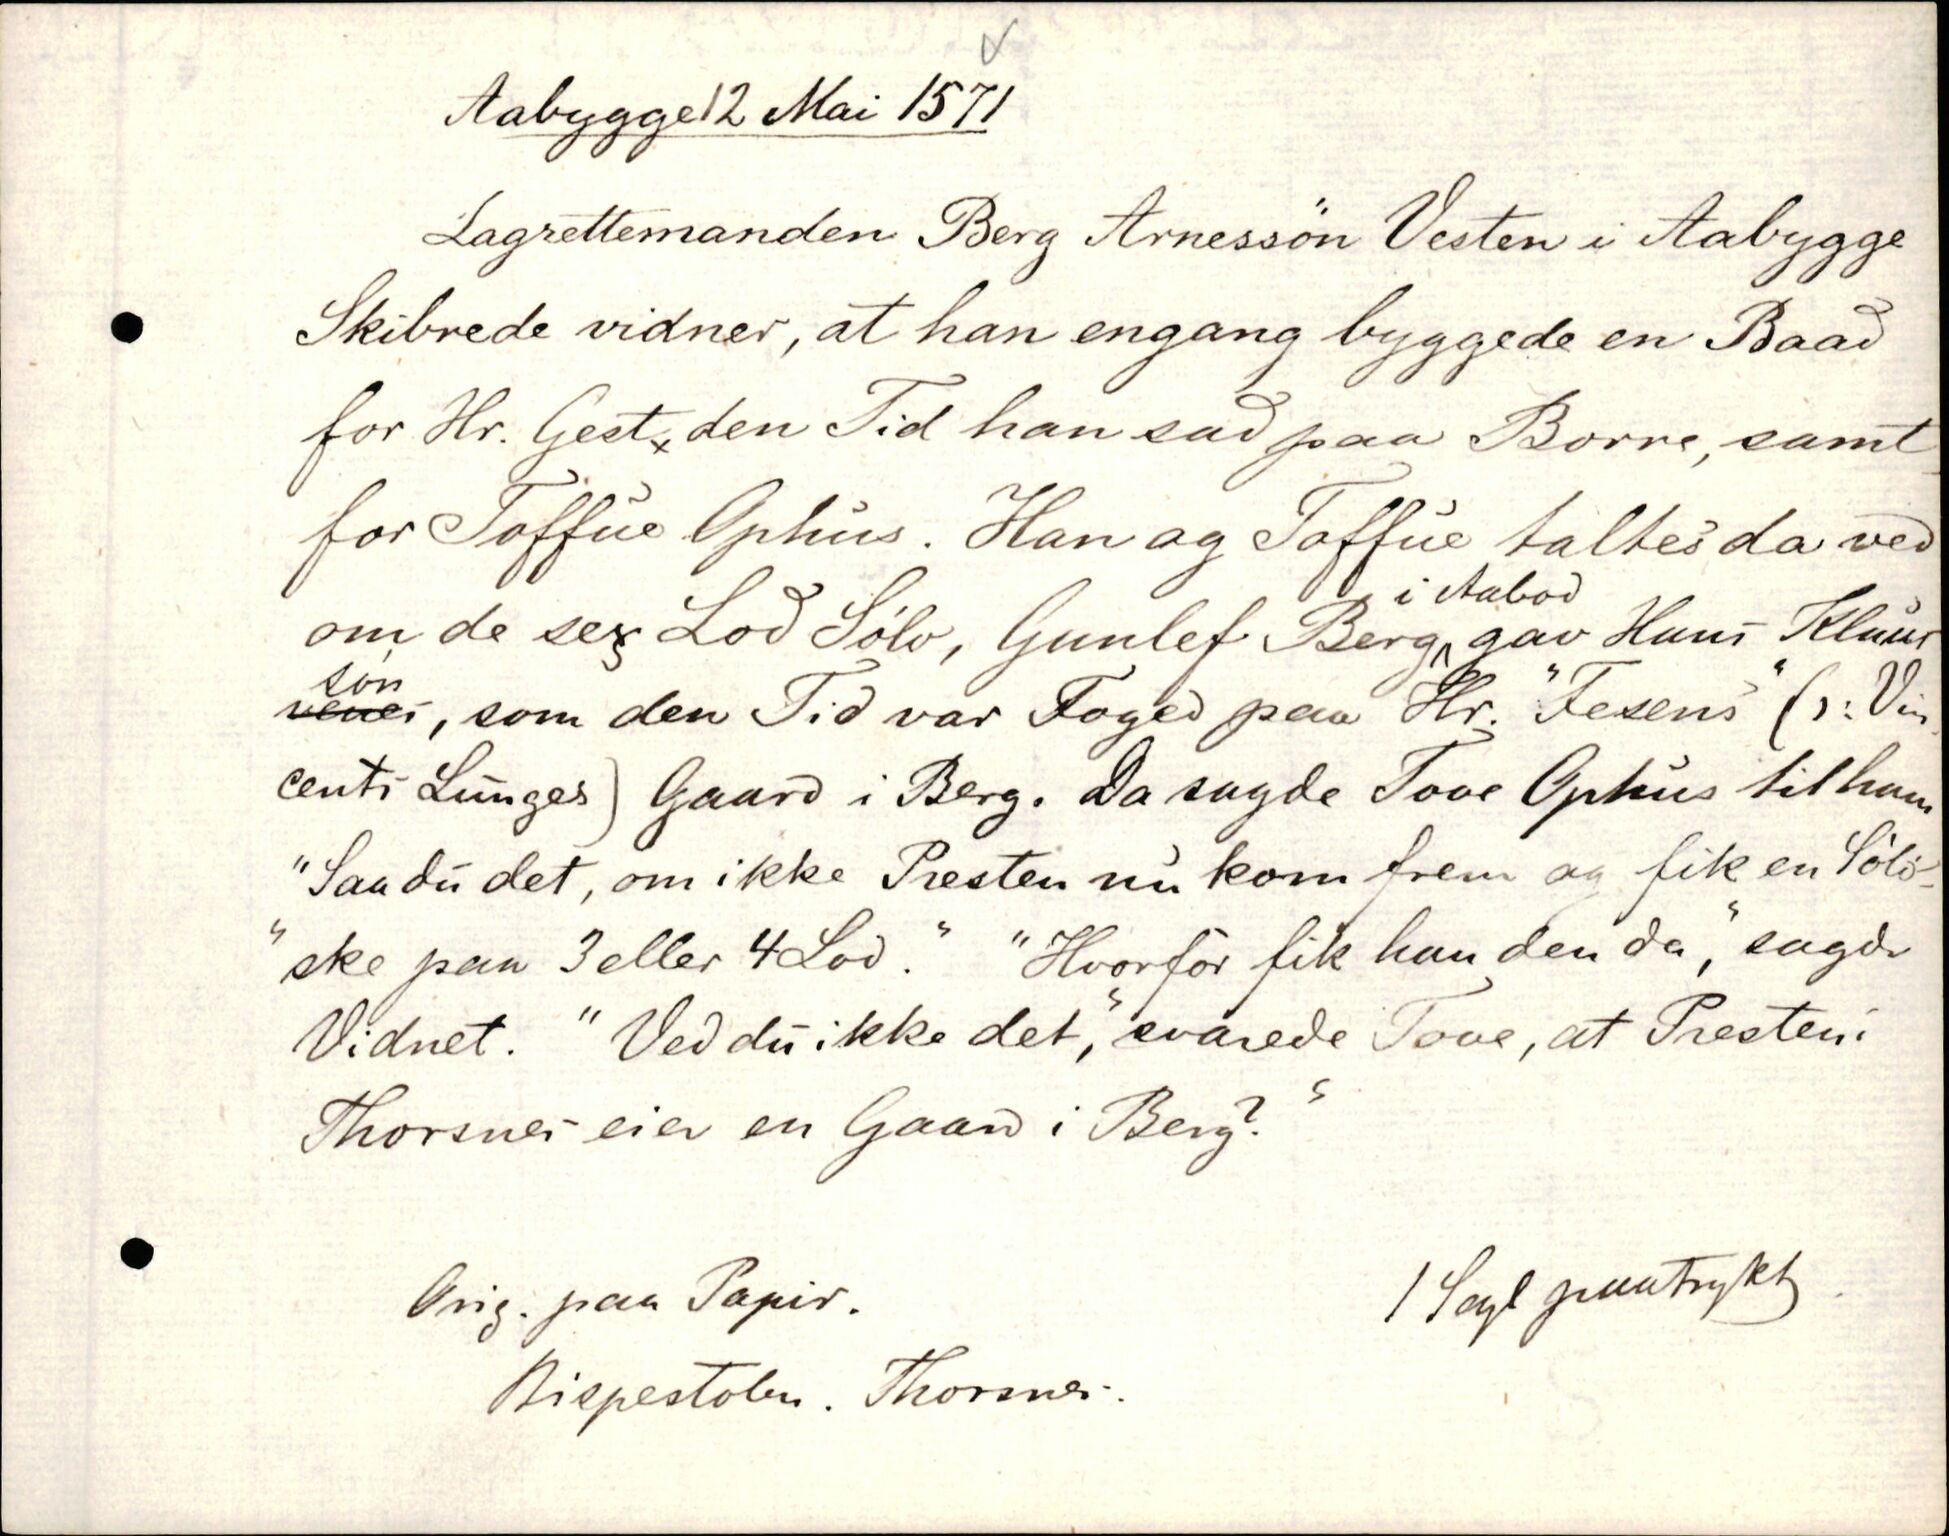 Aabygge 12 Mai 1571
Lagrettemanden Berg Arnessön Vesten i Aabygge
Skibrede vidner, at han engang byggede en Baad
for Hr. Gest, den Tid han sad paa Borre, samt
for Toffue Ophus. Han og Toffue taltes da ved
om de sex Lod Sölv, Gunlef Berg i Aabod gav Hans Klaus
sön, som den Tid var Foged paa Hr. "Fesens" (ɔ: Vin
cents Lunges) Gaard i Berg. Da sagde Tove Ophus til ham
"Saa du det, om ikke Presten nu kom frem og fik en Sölv-
"ske paa 3 eller 4 Lod." "Hvorfor fik han den da," sagde
Vidnet. "Ved du ikke det," svarede Tove, at Presten i
Thorsnes eier en Gaard i Berg?"
Orig. paa Papir. 1 Segl paatrykt
Bispestolen. Thorsnes.